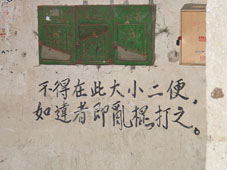 不得在此大小二便，
如違者即亂棍打之。